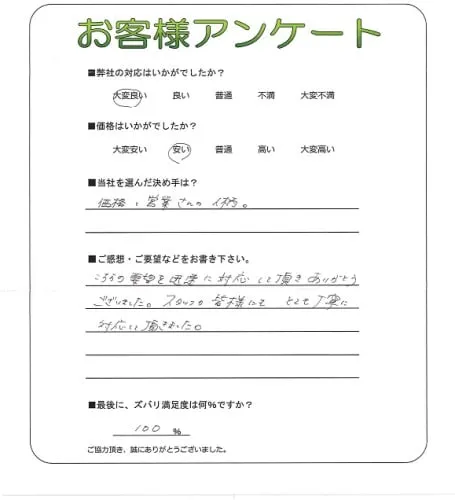 お客様アンケート
■弊社の対応はいかがでしたか?
大変良い 良い 普通 不満 大変不満
■価格はいかがでしたか?
大変安い 安い 普通 高い 大変高い
■当社を選んだ決め手は?
価格、営業さんの人柄。
■ご感想・ご要望などをお書き下さい。
こちらの要望を迅速に対応して頂きありがとう
ございました。スタッフの皆様にも とても丁寧に
対応して頂きました。
■最後に、ズバリ満足度は何%ですか?
100 %
ご協力頂き、誠にありがとうございました。